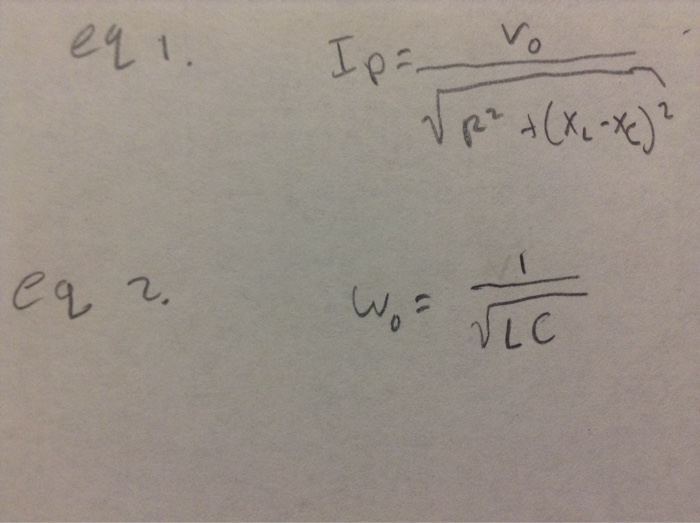 eq 1. I_p = V_0 / √(R² + (X_L - X_C)²)
eq 2. ω_0 = 1 / √(LC)